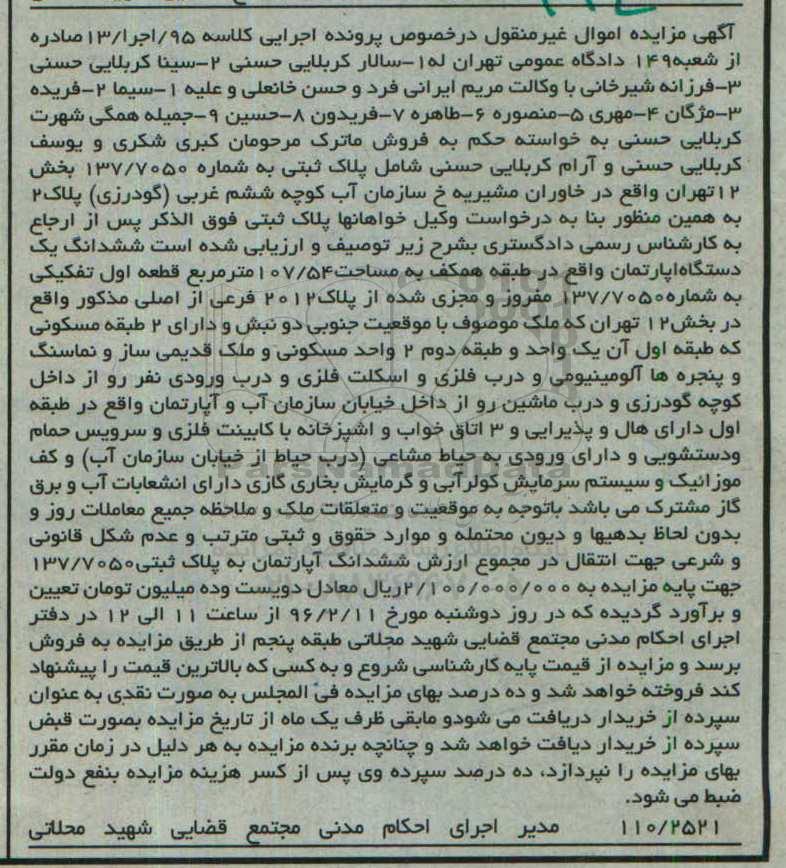 آگهی مزایده اموال غیرمنقول درخصوص پرونده اجرایی کلاسه ۹۵/اجرا/۱۳صادره
از شعبه۱۴۹ دادگاه عمومی تهران له۱-سالار کربلایی حسنی ۲-سینا کربلایی حسنی
۳-فرزانه شیرخانی با وکالت مریم ایرانی فرد و حسن خانعلی و علیه ۱-سیما ۲-فریده
۳-مژگان ۴-مهری ۵-منصوره ۶-طاهره ۷-فریدون ۸-حسین ۹-جمیله همگی شهرت
کربلایی حسنی به خواسته حکم به فروش ماترک مرحومان کبری شکری و یوسف
کربلایی حسنی و آرام کربلایی حسنی شامل پلاک ثبتی به شماره ۱۳۷/۷۰۵۰ بخش
۱۲تهران واقع در خاوران مشیریه خ سازمان آب کوچه ششم غربی (گودرزی) پلاک۲
به همین منظور بنا به درخواست وکیل خواهانها پلاک ثبتی فوق الذکر پس از ارجاع
به کارشناس رسمی دادگستری بشرح زیر توصیف و ارزیابی شده است ششدانگ یک
دستگاه‌اپارتمان واقع در طبقه همکف به مساحت۱۰۷/۵۴مترمربع قطعه اول تفکیکی
به شماره۱۳۷/۷۰۵۰ مفروز و مجزی شده از پلاک۲۰۱۲ فرعی از اصلی مذکور واقع
در بخش۱۲ تهران که ملک موصوف با موقعیت جنوبی دو نبش و دارای ۲ طبقه مسکونی
که طبقه اول آن یک واحد و طبقه دوم ۲ واحد مسکونی و ملک قدیمی ساز و نماسنگ
و پنجره ها آلومینیومی و درب فلزی و اسکلت فلزی و درب ورودی نفر رو از داخل
کوچه گودرزی و درب ماشین رو از داخل خیابان سازمان آب و آپارتمان واقع در طبقه
اول دارای هال و پذیرایی و ۳ اتاق خواب و اشپزخانه با کابینت فلزی و سرویس حمام
ودستشویی و دارای ورودی به حیاط مشاعی (درب حیاط از خیابان سازمان آب) و کف
موزانیک و سیستم سرمایش کولرآبی و گرمایش بخاری گازی دارای انشعابات آب و برق
گاز مشترک می باشد باتوجه به موقعیت و متعلقات ملک و ملاحظه جمیع معاملات روز و
بدون لحاظ بدهیها و دیون محتمله و موارد حقوق و ثبتی مترتب و عدم شکل قانونی
و شرعی جهت انتقال در مجموع ارزش ششدانگ آپارتمان به پلاک ثبتی۱۳۷/۷۰۵۰
جهت پایه مزایده به ۲/۱۰۰/۰۰۰/۰۰۰ریال معادل دویست وده میلیون تومان تعیین
و برآورد گردیده که در روز دوشنبه مورخ ۹۶/۲/۱۱ از ساعت ۱۱ الی ۱۲ در دفتر
اجرای احکام مدنی مجتمع قضایی شهید محلاتی طبقه پنجم از طریق مزایده به فروش
برسد و مزایده از قیمت پایه کارشناسی شروع و به کسی که بالاترین قیمت را پیشنهاد
کند فروخته خواهد شد و ده درصد بهای مزایده فی المجلس به صورت نقدی به عنوان
سپرده از خریدار دریافت می شودو مابقی ظرف یک ماه از تاریخ مزایده بصورت قبض
سپرده از خریدار دیافت خواهد شد و چنانچه برنده مزایده به هر دلیل در زمان مقرر
بهای مزایده را نپردازد، ده درصد سپرده وی پس از کسر هزینه مزایده بنفع دولت
ضبط می شود.
۱۱۰/۲۵۲۱ مدیر اجرای احکام مدنی مجتمع قضایی شهید محلاتی
ParsNamadData